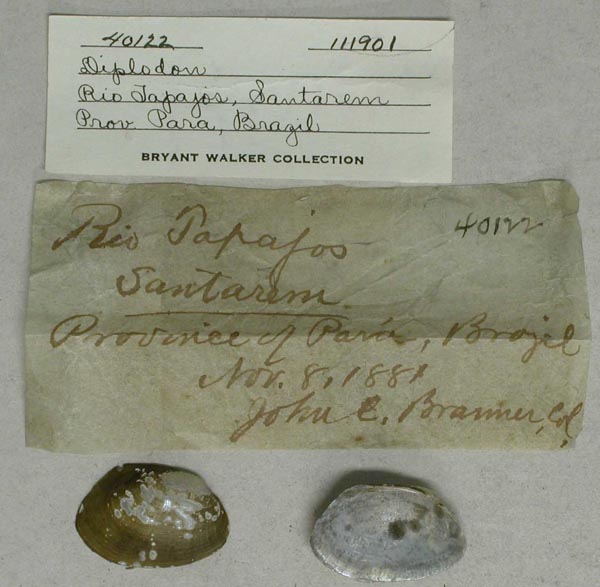 40122 111901
Diplodon
Rio Tapajos, Santarem
Prov. Para, Brazil
BRYANT WALKER COLLECTION
Rio Tapajos 40122
Santarem
Province of Pará, Brazil
Nov. 8, 1881
John C. Branner, Col.